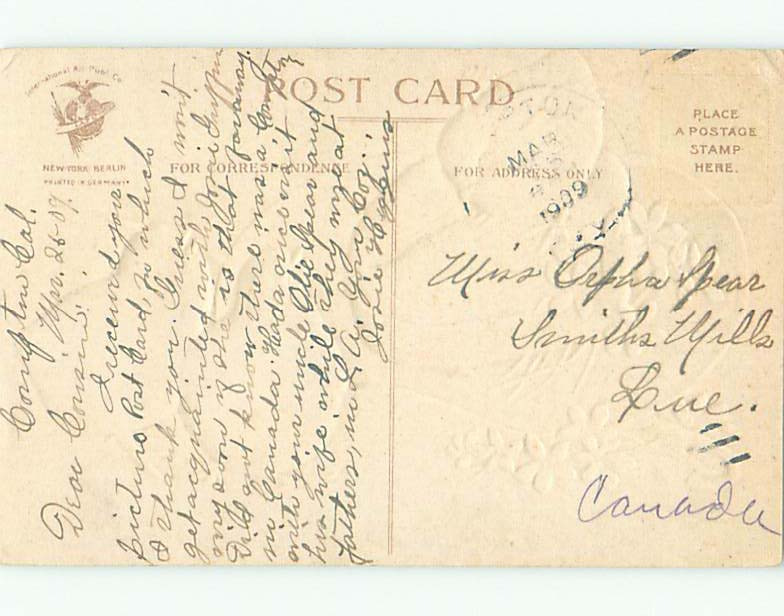 International Art Publ. Co.
NEW-YORK BERLIN
PRINTED IN GERMANY
POST CARD
FOR CORRESPONDENCE
FOR ADDRESS ONLY
PLACE
A POSTAGE
STAMP
HERE.
MAR
1909
Compton Cal.
Mar. 26-09.
Dear Cousin:
I received your
picture Post Card, for which
I thank you. Guess I won't
get acquainted with Josie Griffin
very soon if she is that far away.
Did not know there was a Compton
in Canada. Had a nice visit
with your uncle Otis Spear and
his wife while they were at
fathers, in L.A. Your Coz.,
Josie
Miss Orpha Spear
Smiths Mills
Que.
Canada